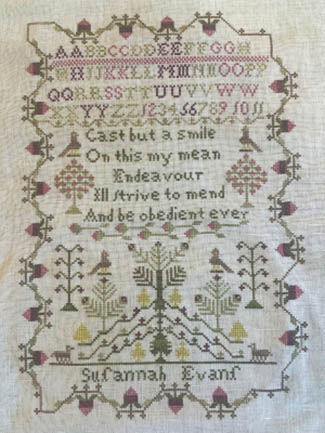 AABBCCDDEEFFGGH
HIJJKKLLMMNNOOPP
QQRRSSTTUUVVWW
YYZZ1234567891011
Cast but a smile
On this my mean
Endeavour
Ill strive to mend
And be obedient ever
Susannah Evans